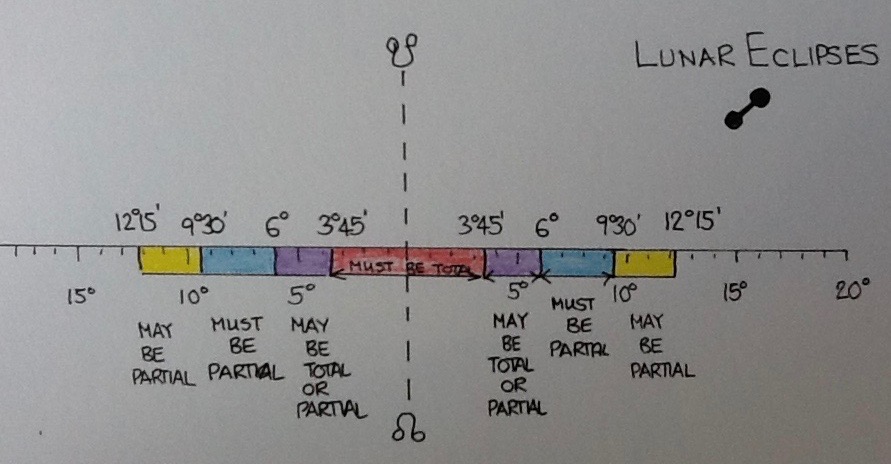 ☋
LUNAR ECLIPSES
12°15' 9°30' 6° 3°45' 3°45' 6° 9°30' 12°15'
MUST BE TOTAL
15° 10° 5° 5° 10° 15° 20°
MAY
BE
PARTIAL
MUST
BE
PARTIAL
MAY
BE
TOTAL
OR
PARTIAL
MAY
BE
TOTAL
OR
PARTIAL
MUST
BE
PARTIAL
MAY
BE
PARTIAL
☊